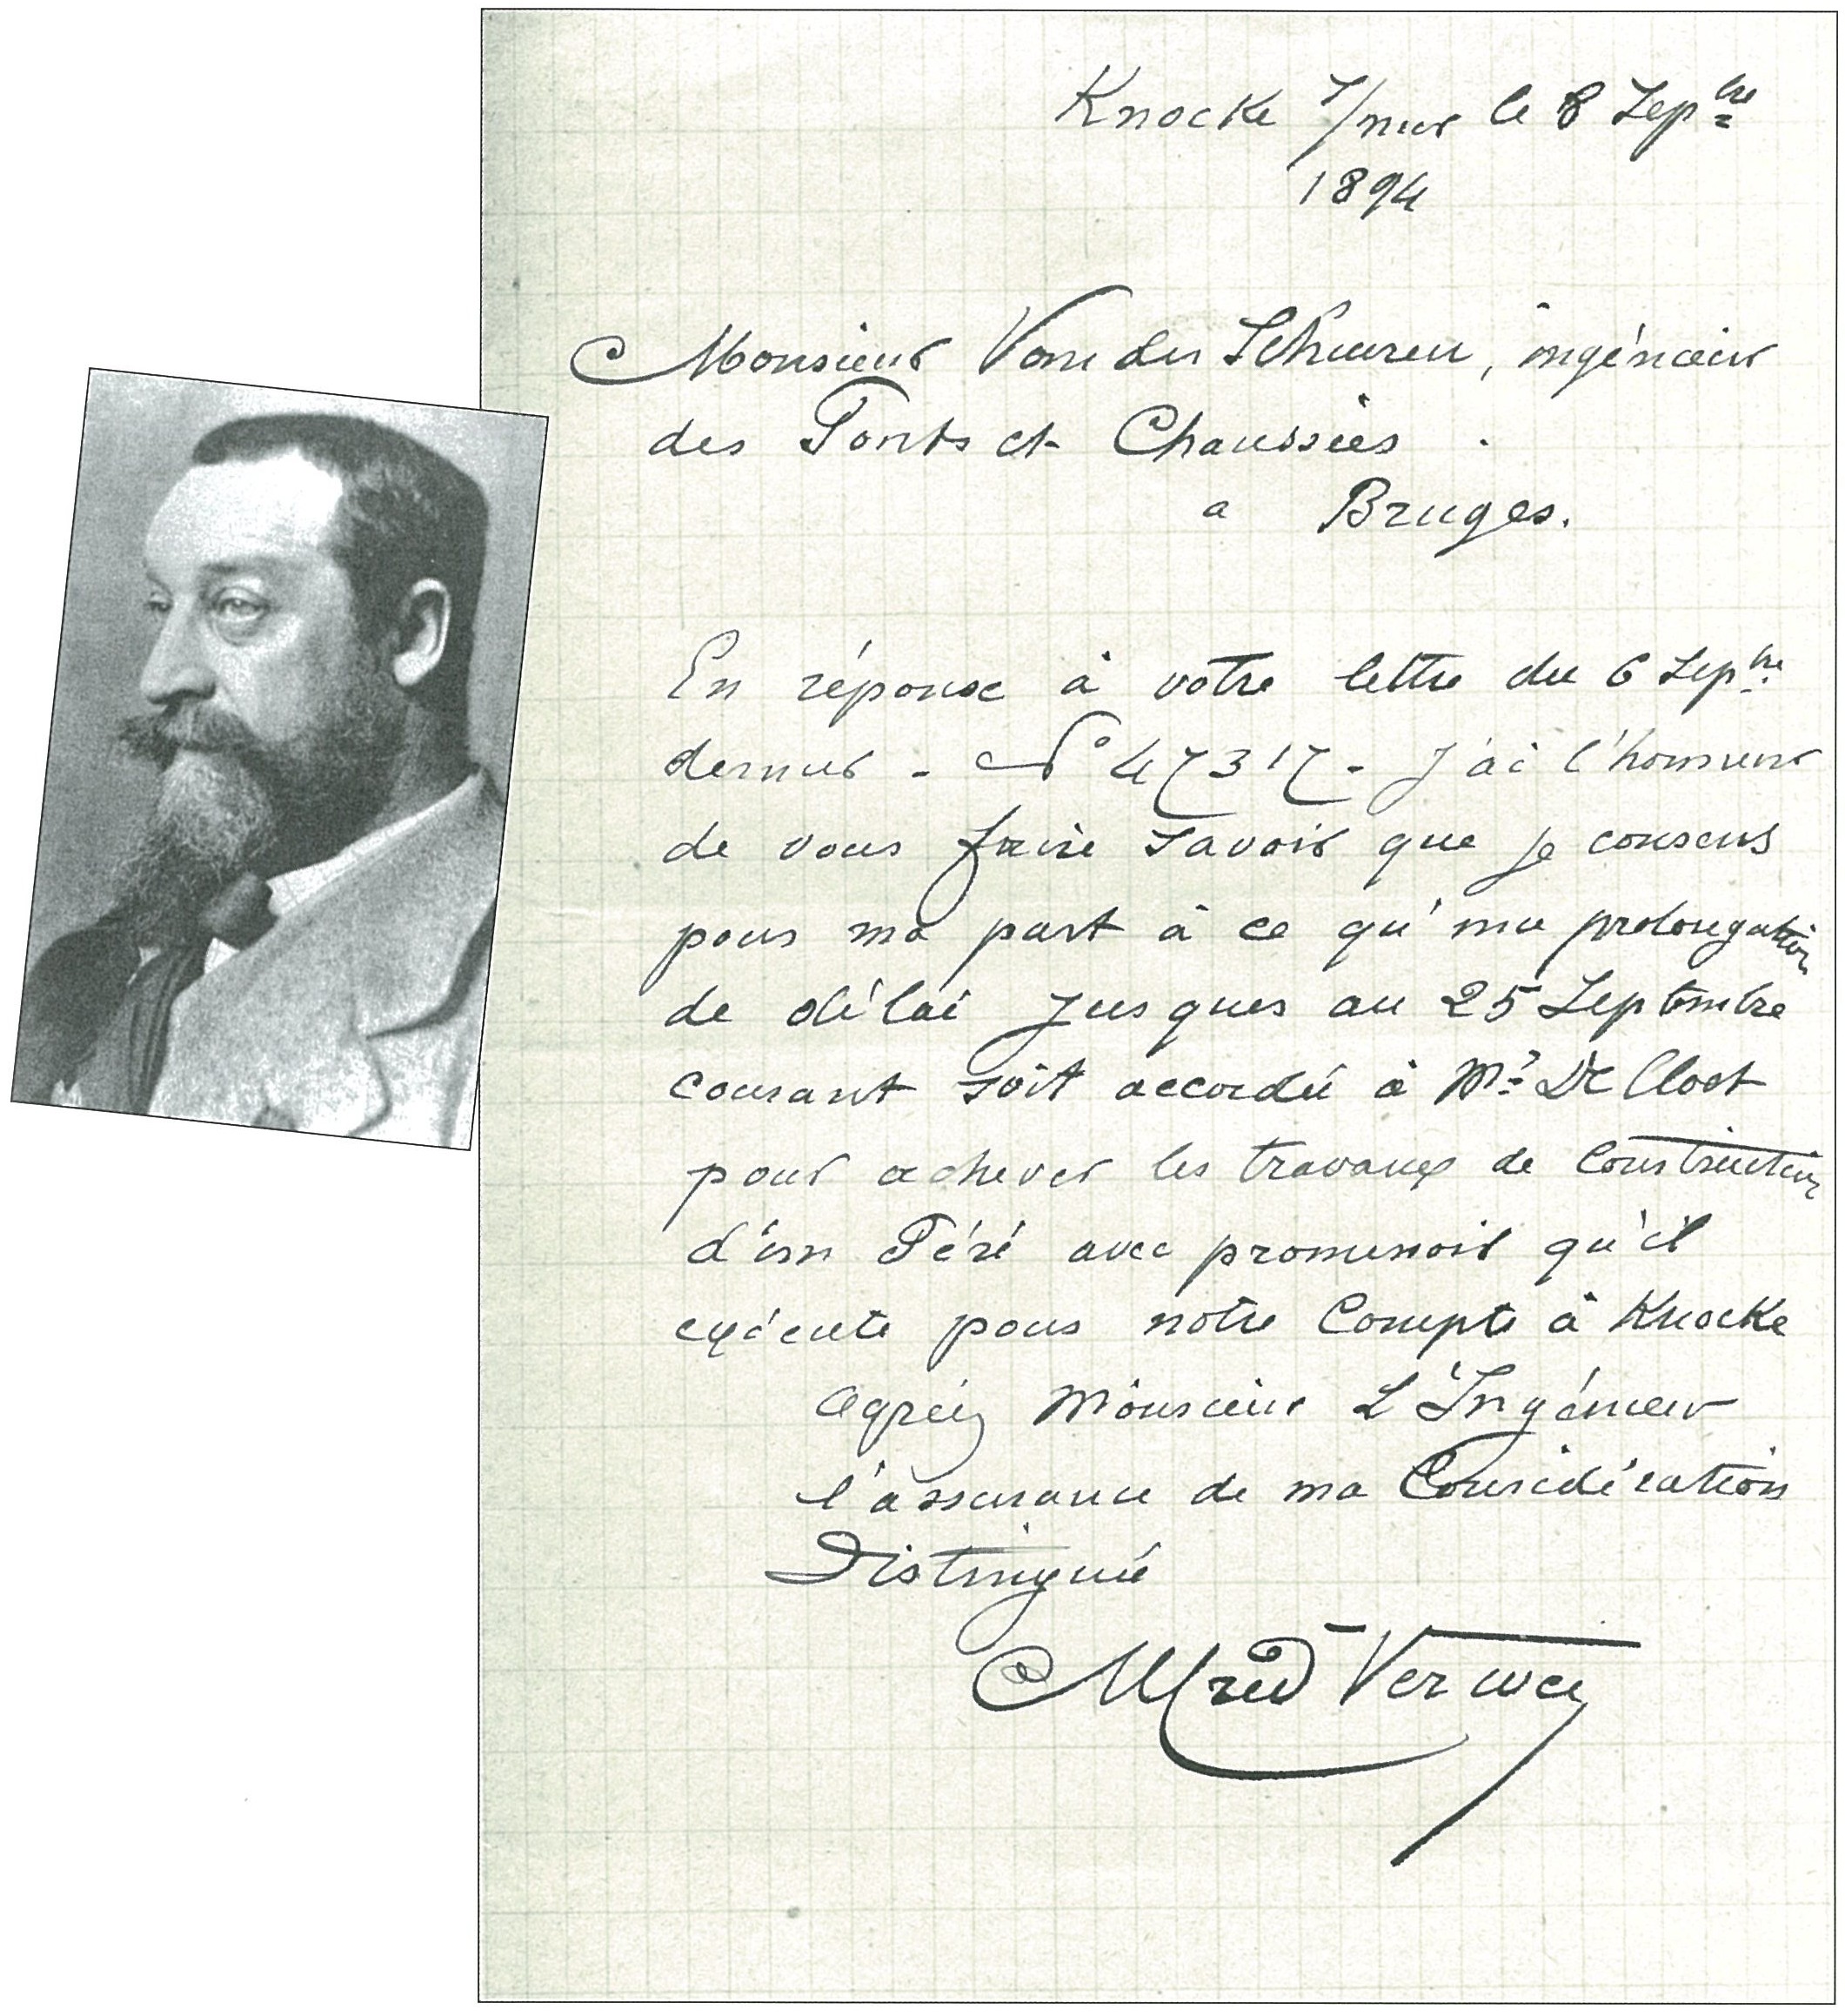 Knocke s/mer le 8 Sep^bre
1894
Monsieur Van der Schueren, ingénieur
des Ponts et Chaussées.
a Bruges.
En réponse à votre lettre du 6 Sep^bre
dernier - N° 47317 - j'ai l'honneur
de vous faire savoir que je consens
pour ma part à ce qu'une prolongation
de délai jusques au 25 Septembre
courant soit accordée à Mr De Cloet
pour achever les travaux de Construction
d'un Péré avec promenoir qu'il
exécute pour notre Compte à Knocke
Agréez Monsieur L'Ingénieur
l'assurance de ma Considération
Distinguée
Alfred Verwee